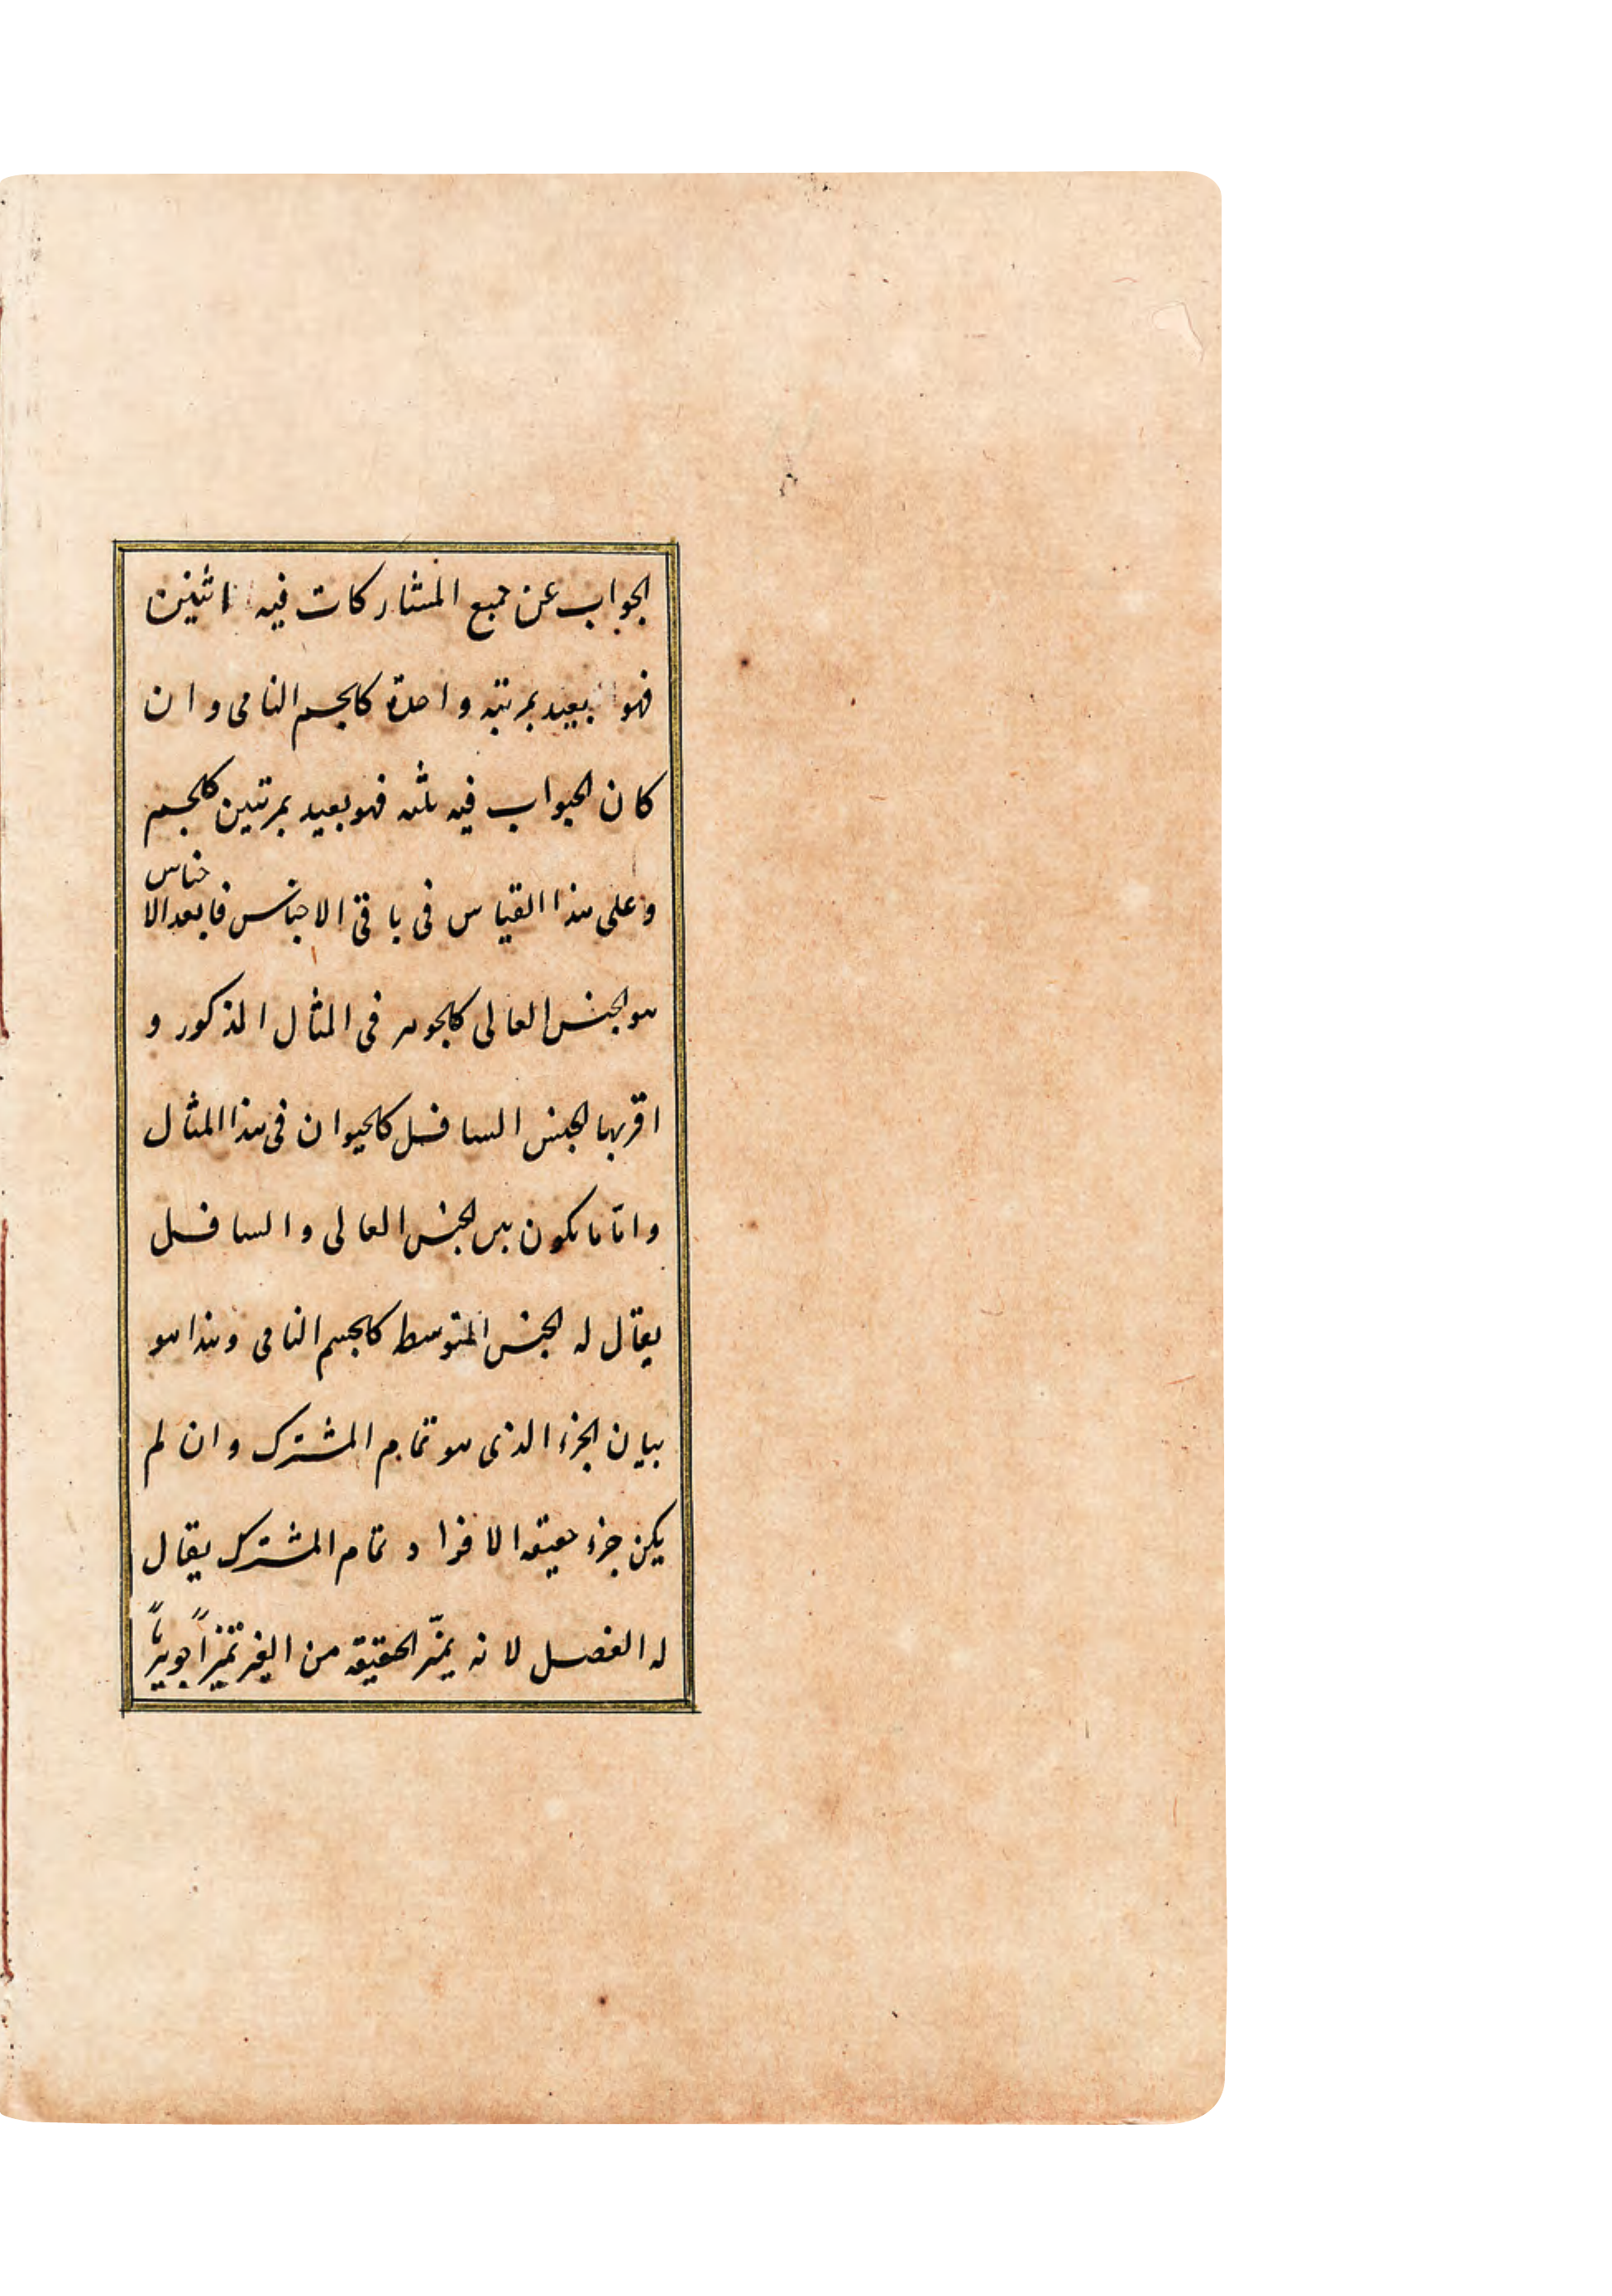 الجواب عن جميع المشاركات فيه اثنين
فهو بعيد بمرتبه واحدة كالجسم النامى وان
كان الجواب فيه ثلثه فهو بعيد بمرتبتين كالجسم
وعلى هذا القياس فى باقى الاجناس فابعد الاجناس
هو الجنس العالى كالجوهر فى المثال المذكور و
اقربها الجنس السافل كالحيوان فى هذا المثال
وامّا ما يكون بين الجنس العالى والسافل
يقال له الجنس المتوسط كالجسم النامى وهذا هو
بيان الجزء الذى هو تمام المشترك وان لم
يكن جزء حقيقه الافراد تمام المشترك يقال
له الفصل لانه يميّز الحقيقه من الغير تميزاً جوهرياً